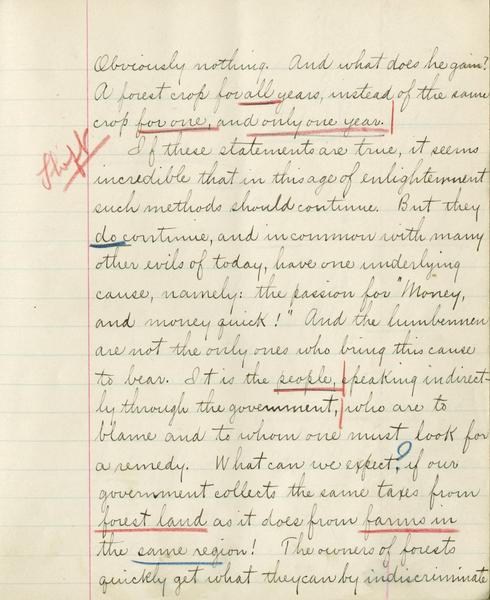 Obviously nothing. And what does he gain?
A forest crop for all years, instead of the same
crop for one, and only one year.
If these statements are true, it seems
incredible that in this age of enlightenment
such methods should continue. But they
do continue, and in common with many
other evils of today, have one underlying
cause, namely: the passion for "Money,
and money quick!" And the lumbermen
are not the only ones who bring this cause
to bear. It is the people, speaking indirect-
ly through the government, who are to
blame and to whom one must look for
a remedy. What can we expect? if our
government collects the same taxes from
forest land as it does from farms in
the same region! The owners of forests
quickly get what they can by indiscriminate